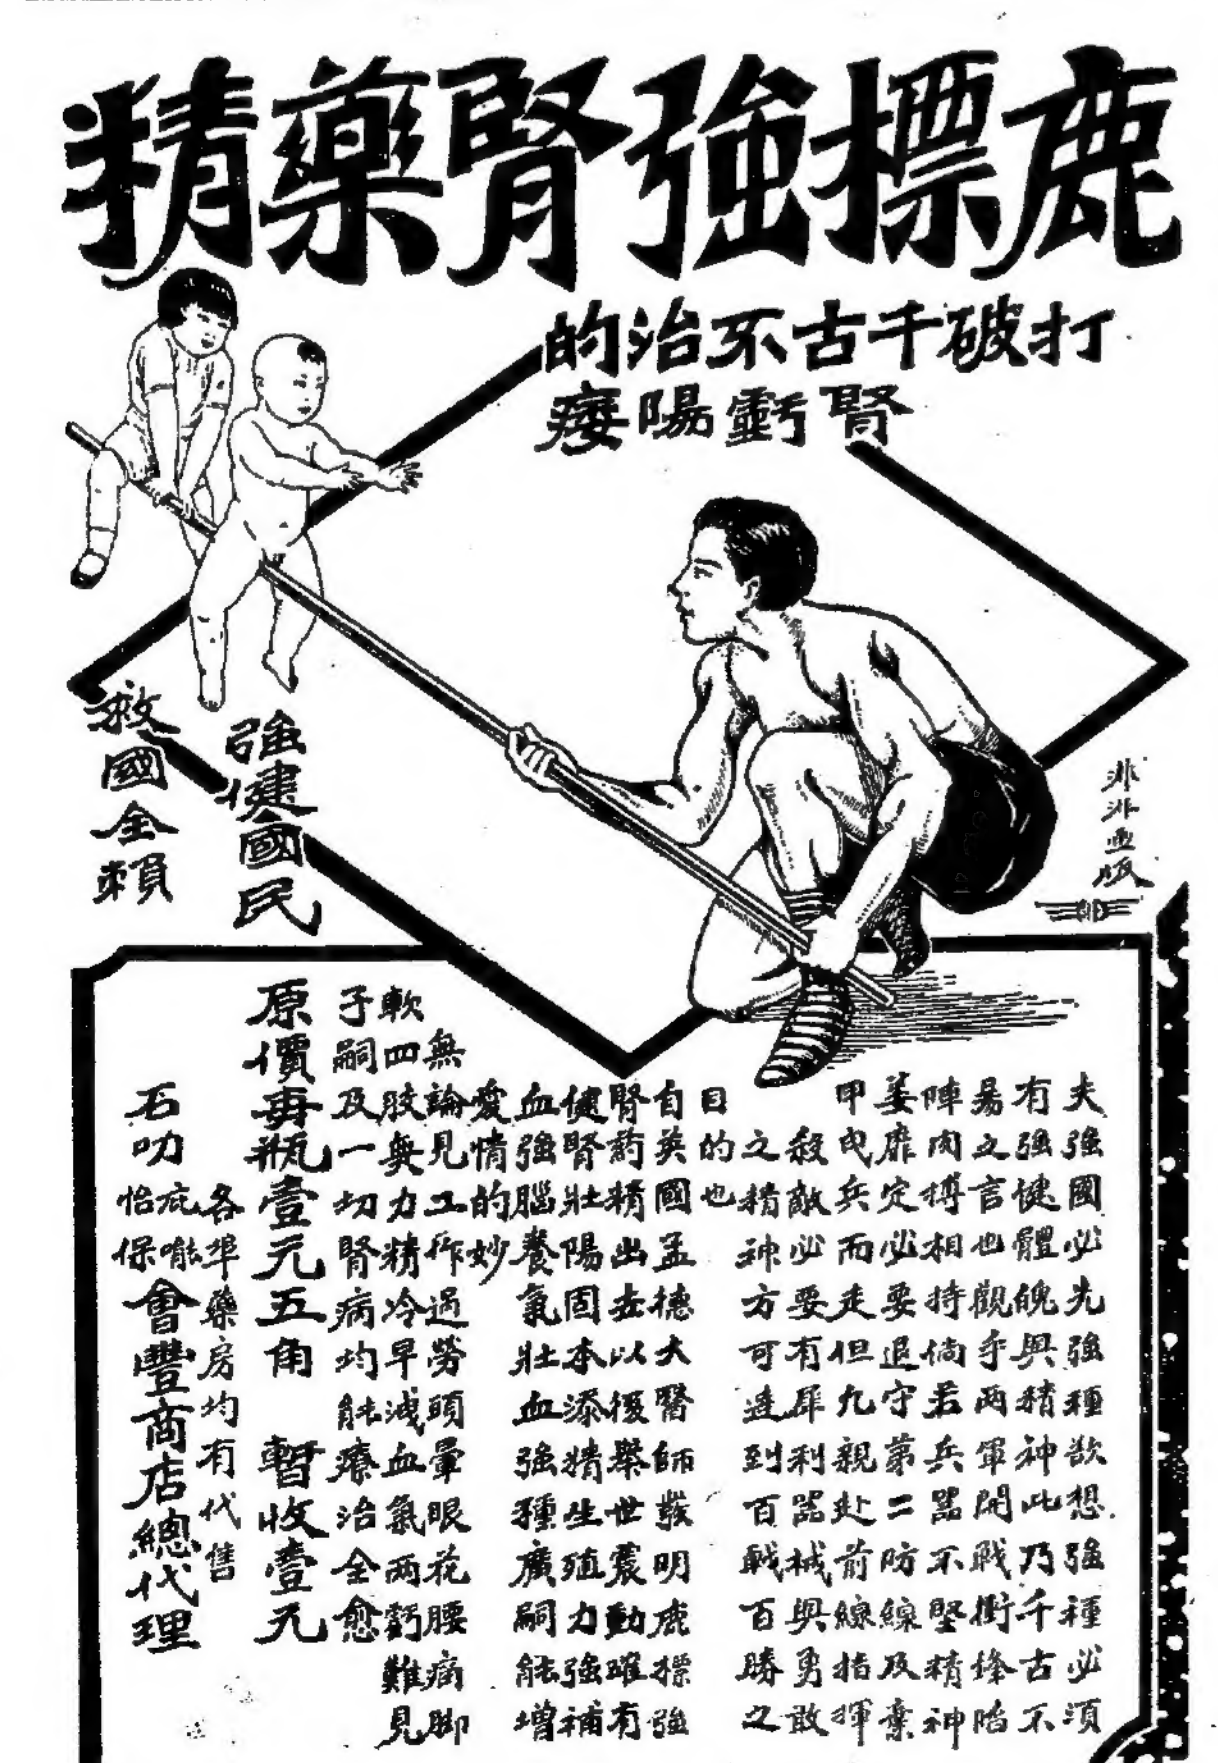 鹿標強腎藥精
打破千古不治的
腎虧陽痿
強健國民
救國全賴
非非畫版
夫強國必先強種欲想強種必須
有強健體魄與精神此乃千古不
易之言也觀乎两軍開戰衝鋒陷
陣肉搏相持倘若兵器不堅精神
萎靡定必要退守第二防線及棄
甲曳兵而走但凡親赴前線指揮
殺敵必要有犀利器械與勇敢
之精神方可達到百戰百勝之
目的也
自英國孟德大醫師發明鹿標強
腎葯精出去以後舉世震動確有
健腎壯陽固本添精生殖力強補
血強腦養氣壯血強種廣嗣能增
愛情的妙
無論見工作過勞頭暈眼花腰痛脚
軟四肢無力精冷早洩血氣两虧難見
子嗣及一切腎病均能療治全愈
原價每瓶壹元五角 暫收壹元
各埠藥房均有代售
石叻 庇能 怡保 會豐商店總代理